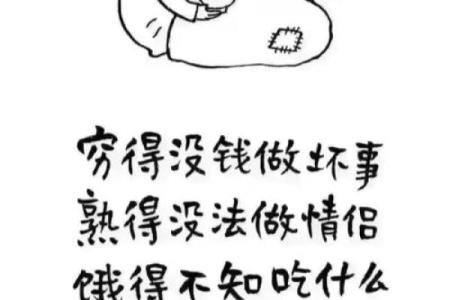 穷得没钱做坏事
熟得没法做情侣
饿得不知吃什么